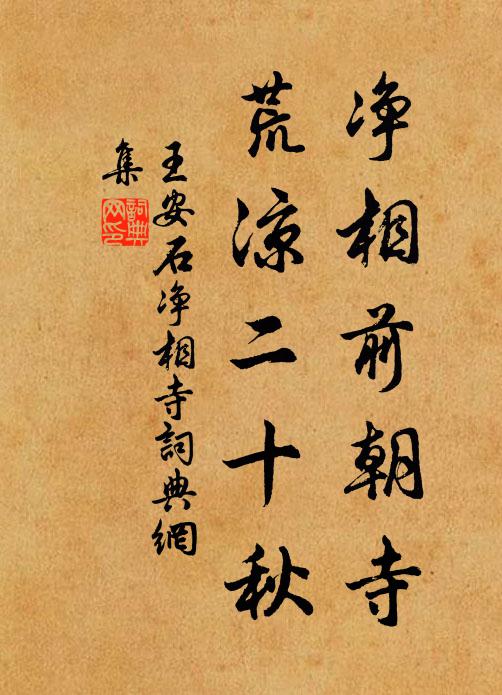 净相前朝寺
荒凉二十秋
王安石净相寺詞典網
集
詞典
网印